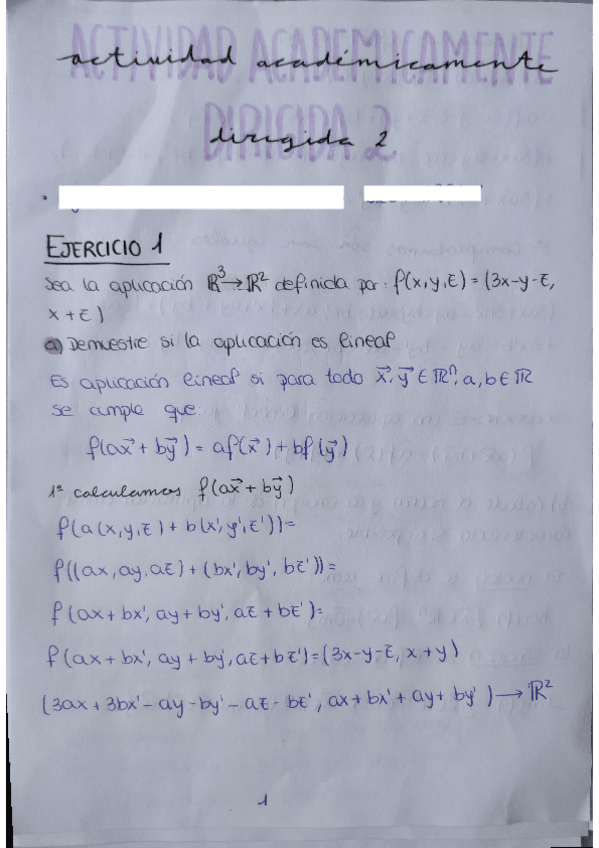 ACTIVIDAD ACADÉMICAMENTE
actividad académicamente
DIRIGIDA 2
dirigida 2
EJERCICIO 1
Sea la aplicación ℝ³→ℝ² definida por: f(x,y,z) = (3x-y-z,
x+z)
a) Demuestre si la aplicación es lineal
Es aplicación lineal si para todo x⃗, y⃗ ∈ ℝⁿ, a, b ∈ ℝ
se cumple que:
f(ax⃗ + by⃗) = af(x⃗) + bf(y⃗)
1º calculamos f(ax⃗ + by⃗)
f(a(x,y,z) + b(x',y',z')) =
f((ax, ay, az) + (bx', by', bz')) =
f(ax + bx', ay + by', az + bz') =
f(ax + bx', ay + by', az + bz') = (3x-y-z, x+y)
(3ax + 3bx' - ay - by' - az - bz', ax + bx' + ay + by') → ℝ²
1